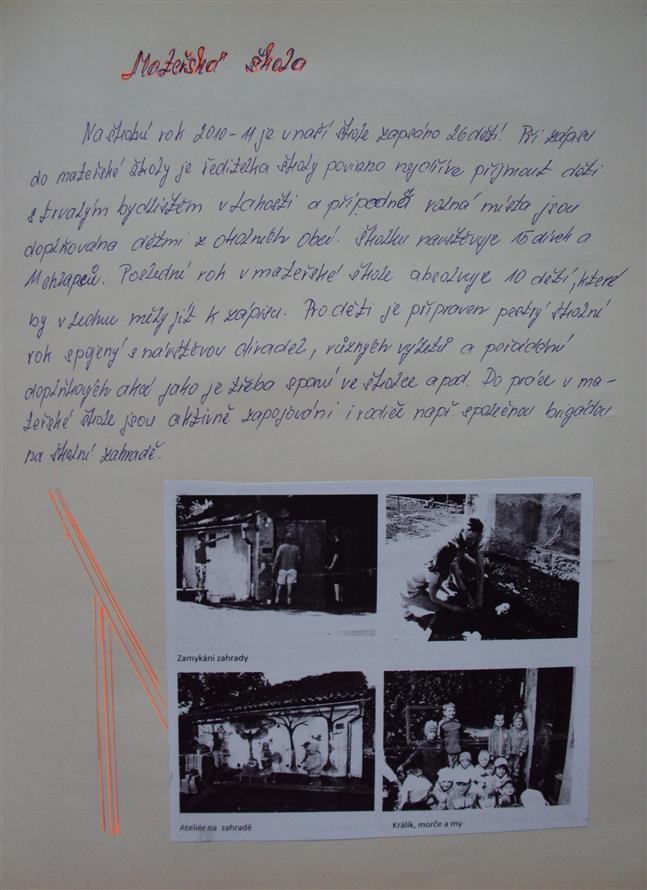 Mateřská škola
Na školní rok 2010-11 je v naší škole zapsáno 26 dětí. Při zápisu
do mateřské školy je ředitelka školy povinna nejdříve přijmout děti
s trvalým bydlištěm v Lhostě a případně volná místa jsou
doplňována dětmi z okolních obcí. Školku navštěvuje 15 dívek a
11 chlapců. Poslední rok v mateřské škole absolvuje 10 dětí, které
by v lednu měly jít k zápisu. Pro děti je připraven pestrý školní
rok spojený s návštěvou divadel, různých výletů a pořádání
doplňkových akcí jako je třeba spaní ve školce apod. Do práce v ma-
teřské škole jsou aktivně zapojováni i rodiče např. společnou brigádou
na školní zahradě.
Zamykání zahrady
Ateliér na zahradě
Králík, morče a my